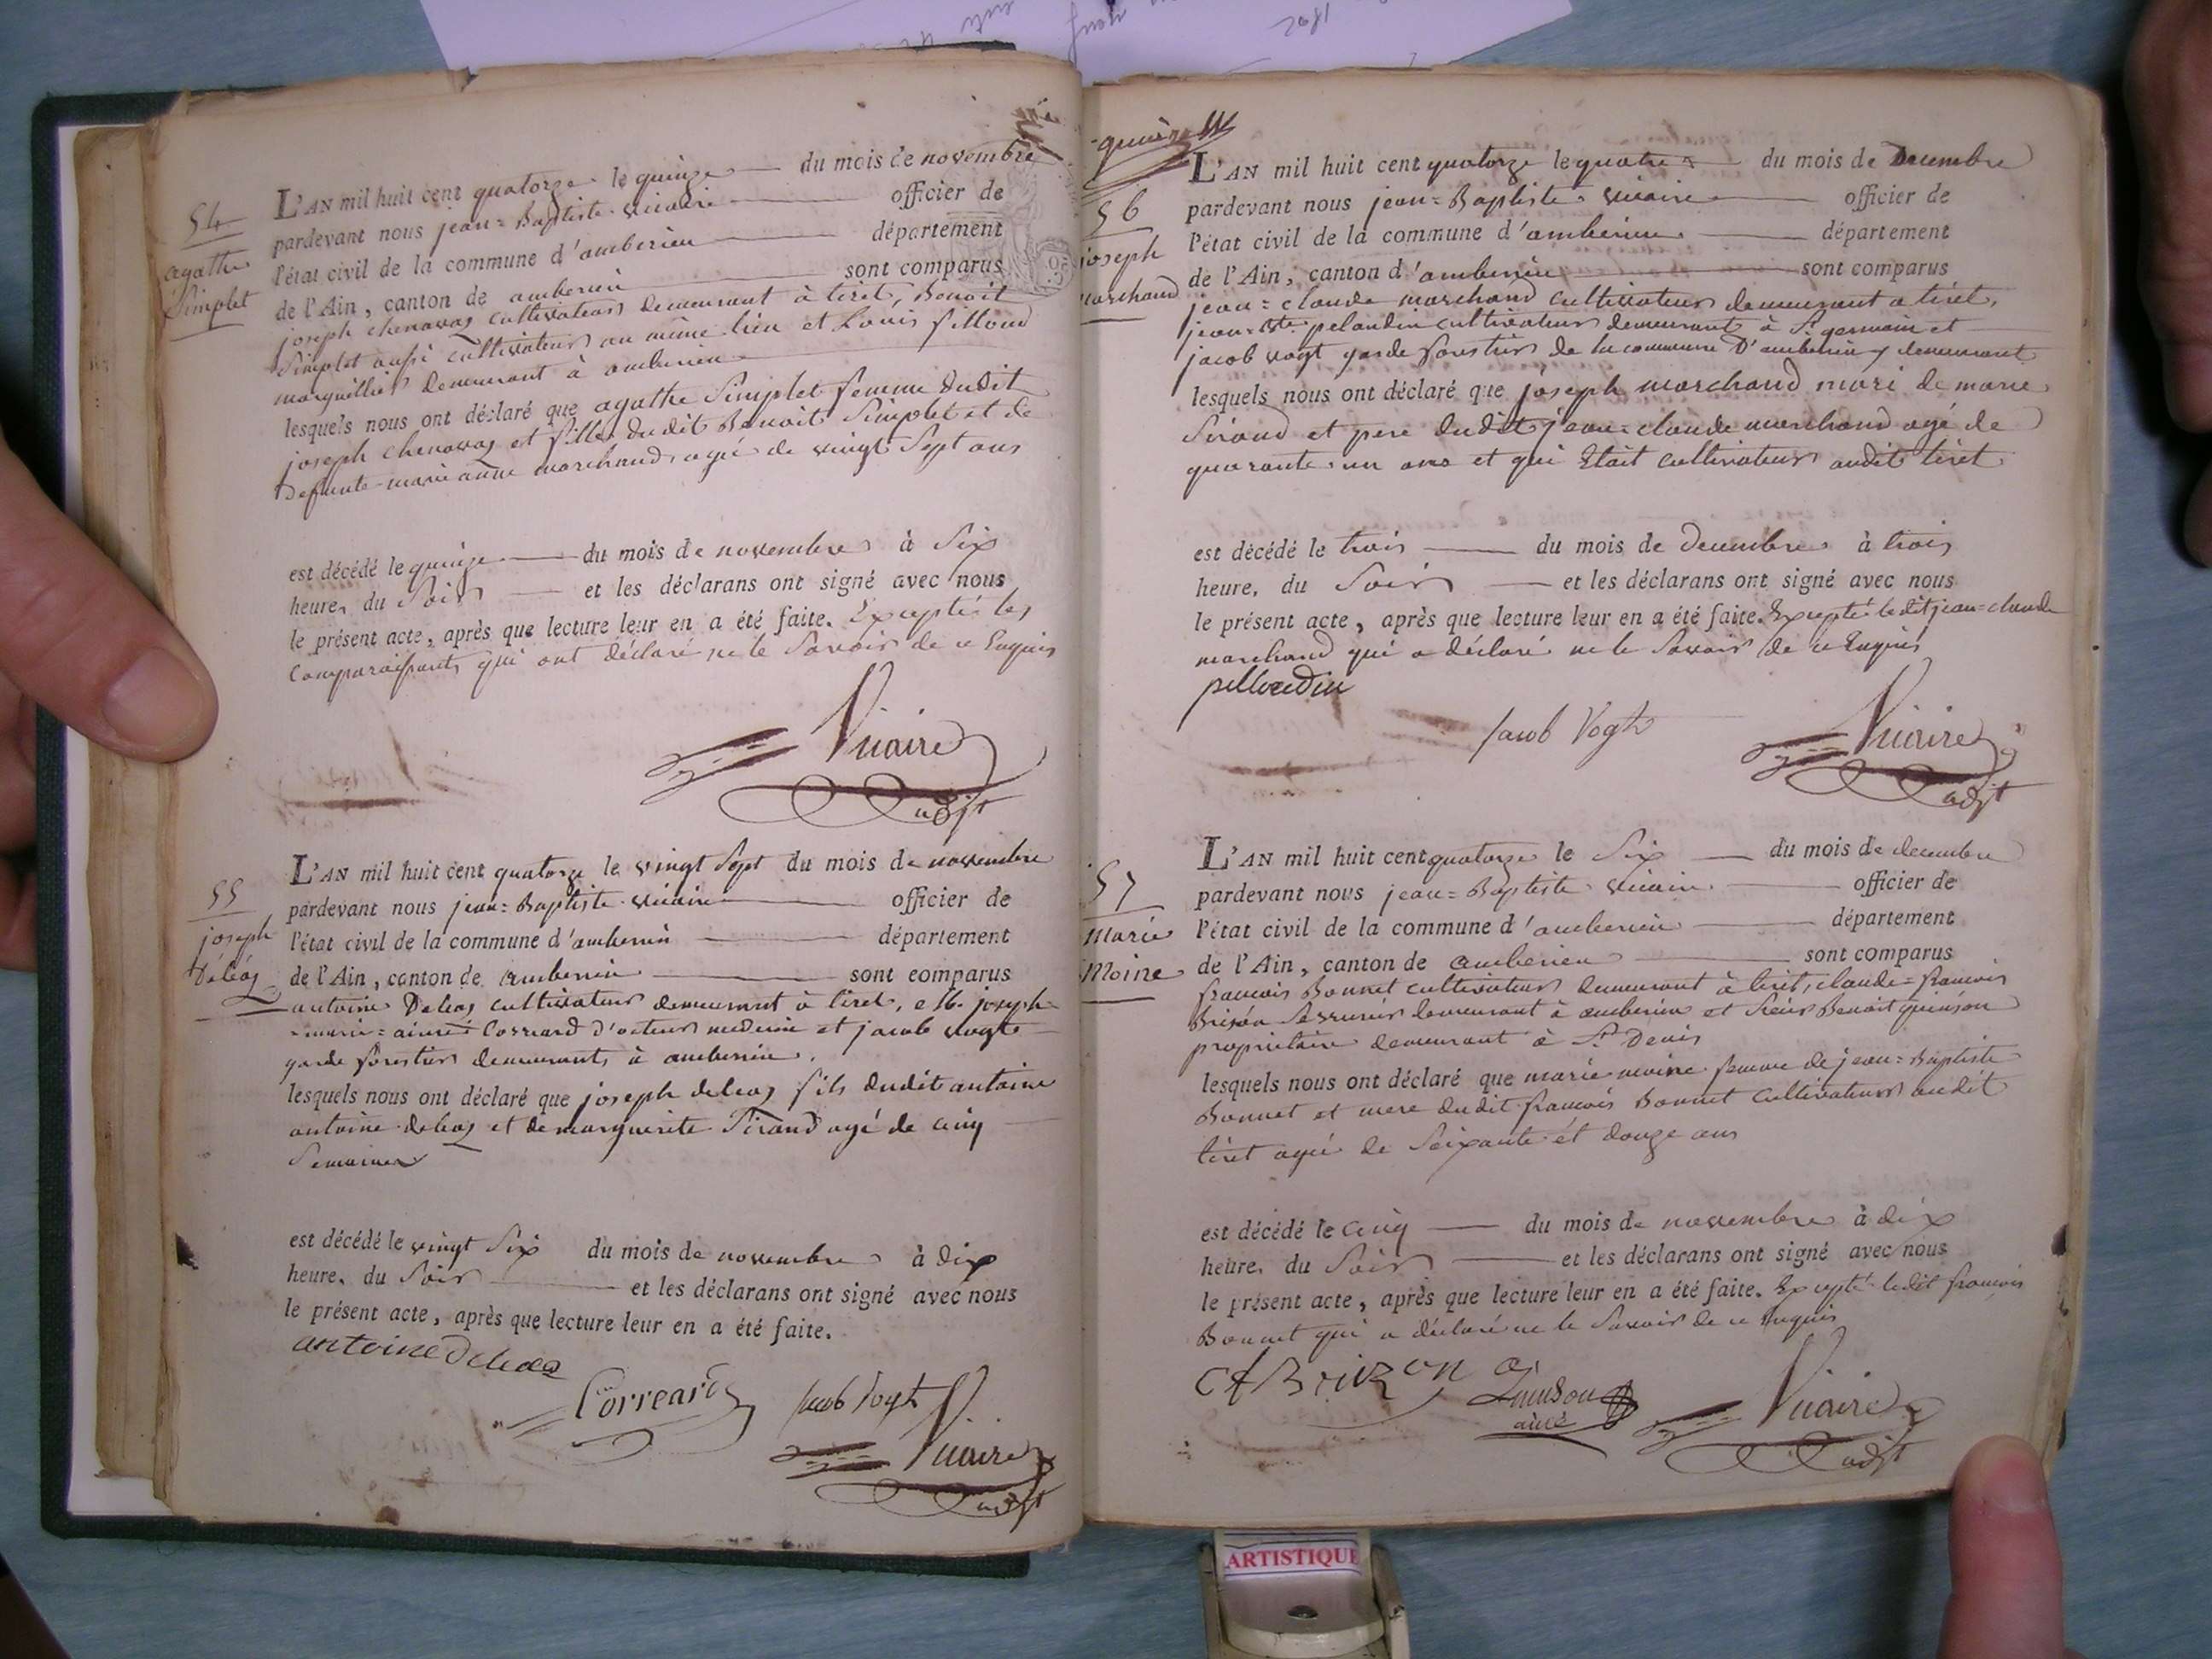 54
agathe
Simplet
L'AN mil huit cent quatorze le quinze du mois de novembre
pardevant nous jean=Baptiste vicaire officier de
l'état civil de la commune d'amberieu département
de l'Ain, canton de amberieu sont comparus
joseph chenavaz cultivateur demeurant à tiret, Benoit
Simplet aussi cultivateur au même lieu et Louis filloud
marguillier demeurant à amberieu
lesquels nous ont déclaré que agathe Simplet femme dudit
joseph chenavaz et fille dudit Benoit Simplet et de
defunte marie anne marchand agée de vingt Sept ans
est décédé le quinze du mois de novembre à Six
heure, du Soir et les déclarans ont signé avec nous
le présent acte, après que lecture leur en a été faite. Excepté les
comparaissants qui ont déclaré ne le Savoir de ce Enquis
Vicaire
adjt
55
joseph
Déléaz
L'AN mil huit cent quatorze le vingt Sept du mois de novembre
pardevant nous jean=Baptiste vicaire officier de
l'état civil de la commune d'amberieu département
de l'Ain, canton de amberieu sont comparus
antoine Deleaz cultivateur demeurant à tiret, joseph=
=marie=aimé Correard docteur medecin et jacob vogt
garde forestier demeurants à amberieu.
lesquels nous ont déclaré que joseph deleaz fils dudit antoine
antoine deleaz et de marguerite Sirand agé de cinq
Semaines
est décédé le vingt Six du mois de novembre à dix
heure, du Soir et les déclarans ont signé avec nous
le présent acte, après que lecture leur en a été faite.
antoine Deleaz
Correard
Jacob Vogt
Vicaire
adjt
56
joseph
marchand
L'AN mil huit cent quatorze le quatre du mois de Decembre
pardevant nous jean=Baptiste vicaire officier de
l'état civil de la commune d'amberieu département
de l'Ain, canton d'amberieu sont comparus
jean=claude marchand cultivateur demeurant a tiret,
jean=Bte pelaudin cultivateur demeurant à St germain et
jacob vogt garde forestier de la commune D'amberieu y demeurant
lesquels nous ont déclaré que joseph marchand mari de marie
Sirand et pere dudit jean=claude marchand agé de
quarante un ans et qui Etait cultivateur audit tiret
est décédé le trois du mois de decembre à trois
heure, du Soir et les déclarans ont signé avec nous
le présent acte, après que lecture leur en a été faite. Excepté ledit jean=claude
marchand qui a déclaré ne le Savoir de ce Enquis
Jacob Vogt
Vicaire
adjt
57
Marie
Moine
L'AN mil huit cent quatorze le Six du mois de decembre
pardevant nous jean=Baptiste vicaire officier de
l'état civil de la commune d'amberieu département
de l'Ain, canton de amberieu sont comparus
francois Bonnet cultivateur demeurant à tiret, claude=francois
Brizon Serrurier demeurant à amberieu et Sieur Benoit quinson
proprietaire demeurant à St Denis
lesquels nous ont déclaré que marie moine femme de jean=Baptiste
Bonnet et mere dudit francois Bonnet cultivateur audit
tiret agée de Soixante et douze ans
est décédé le cinq du mois de novembre à dix
heure, du Soir et les déclarans ont signé avec nous
le présent acte, après que lecture leur en a été faite. Excepté ledit francois
Bonnet qui a déclaré ne le Savoir de ce Enquis
Cf Brizon
Quinson
ainé
Vicaire
adjt
ARTISTIQUE